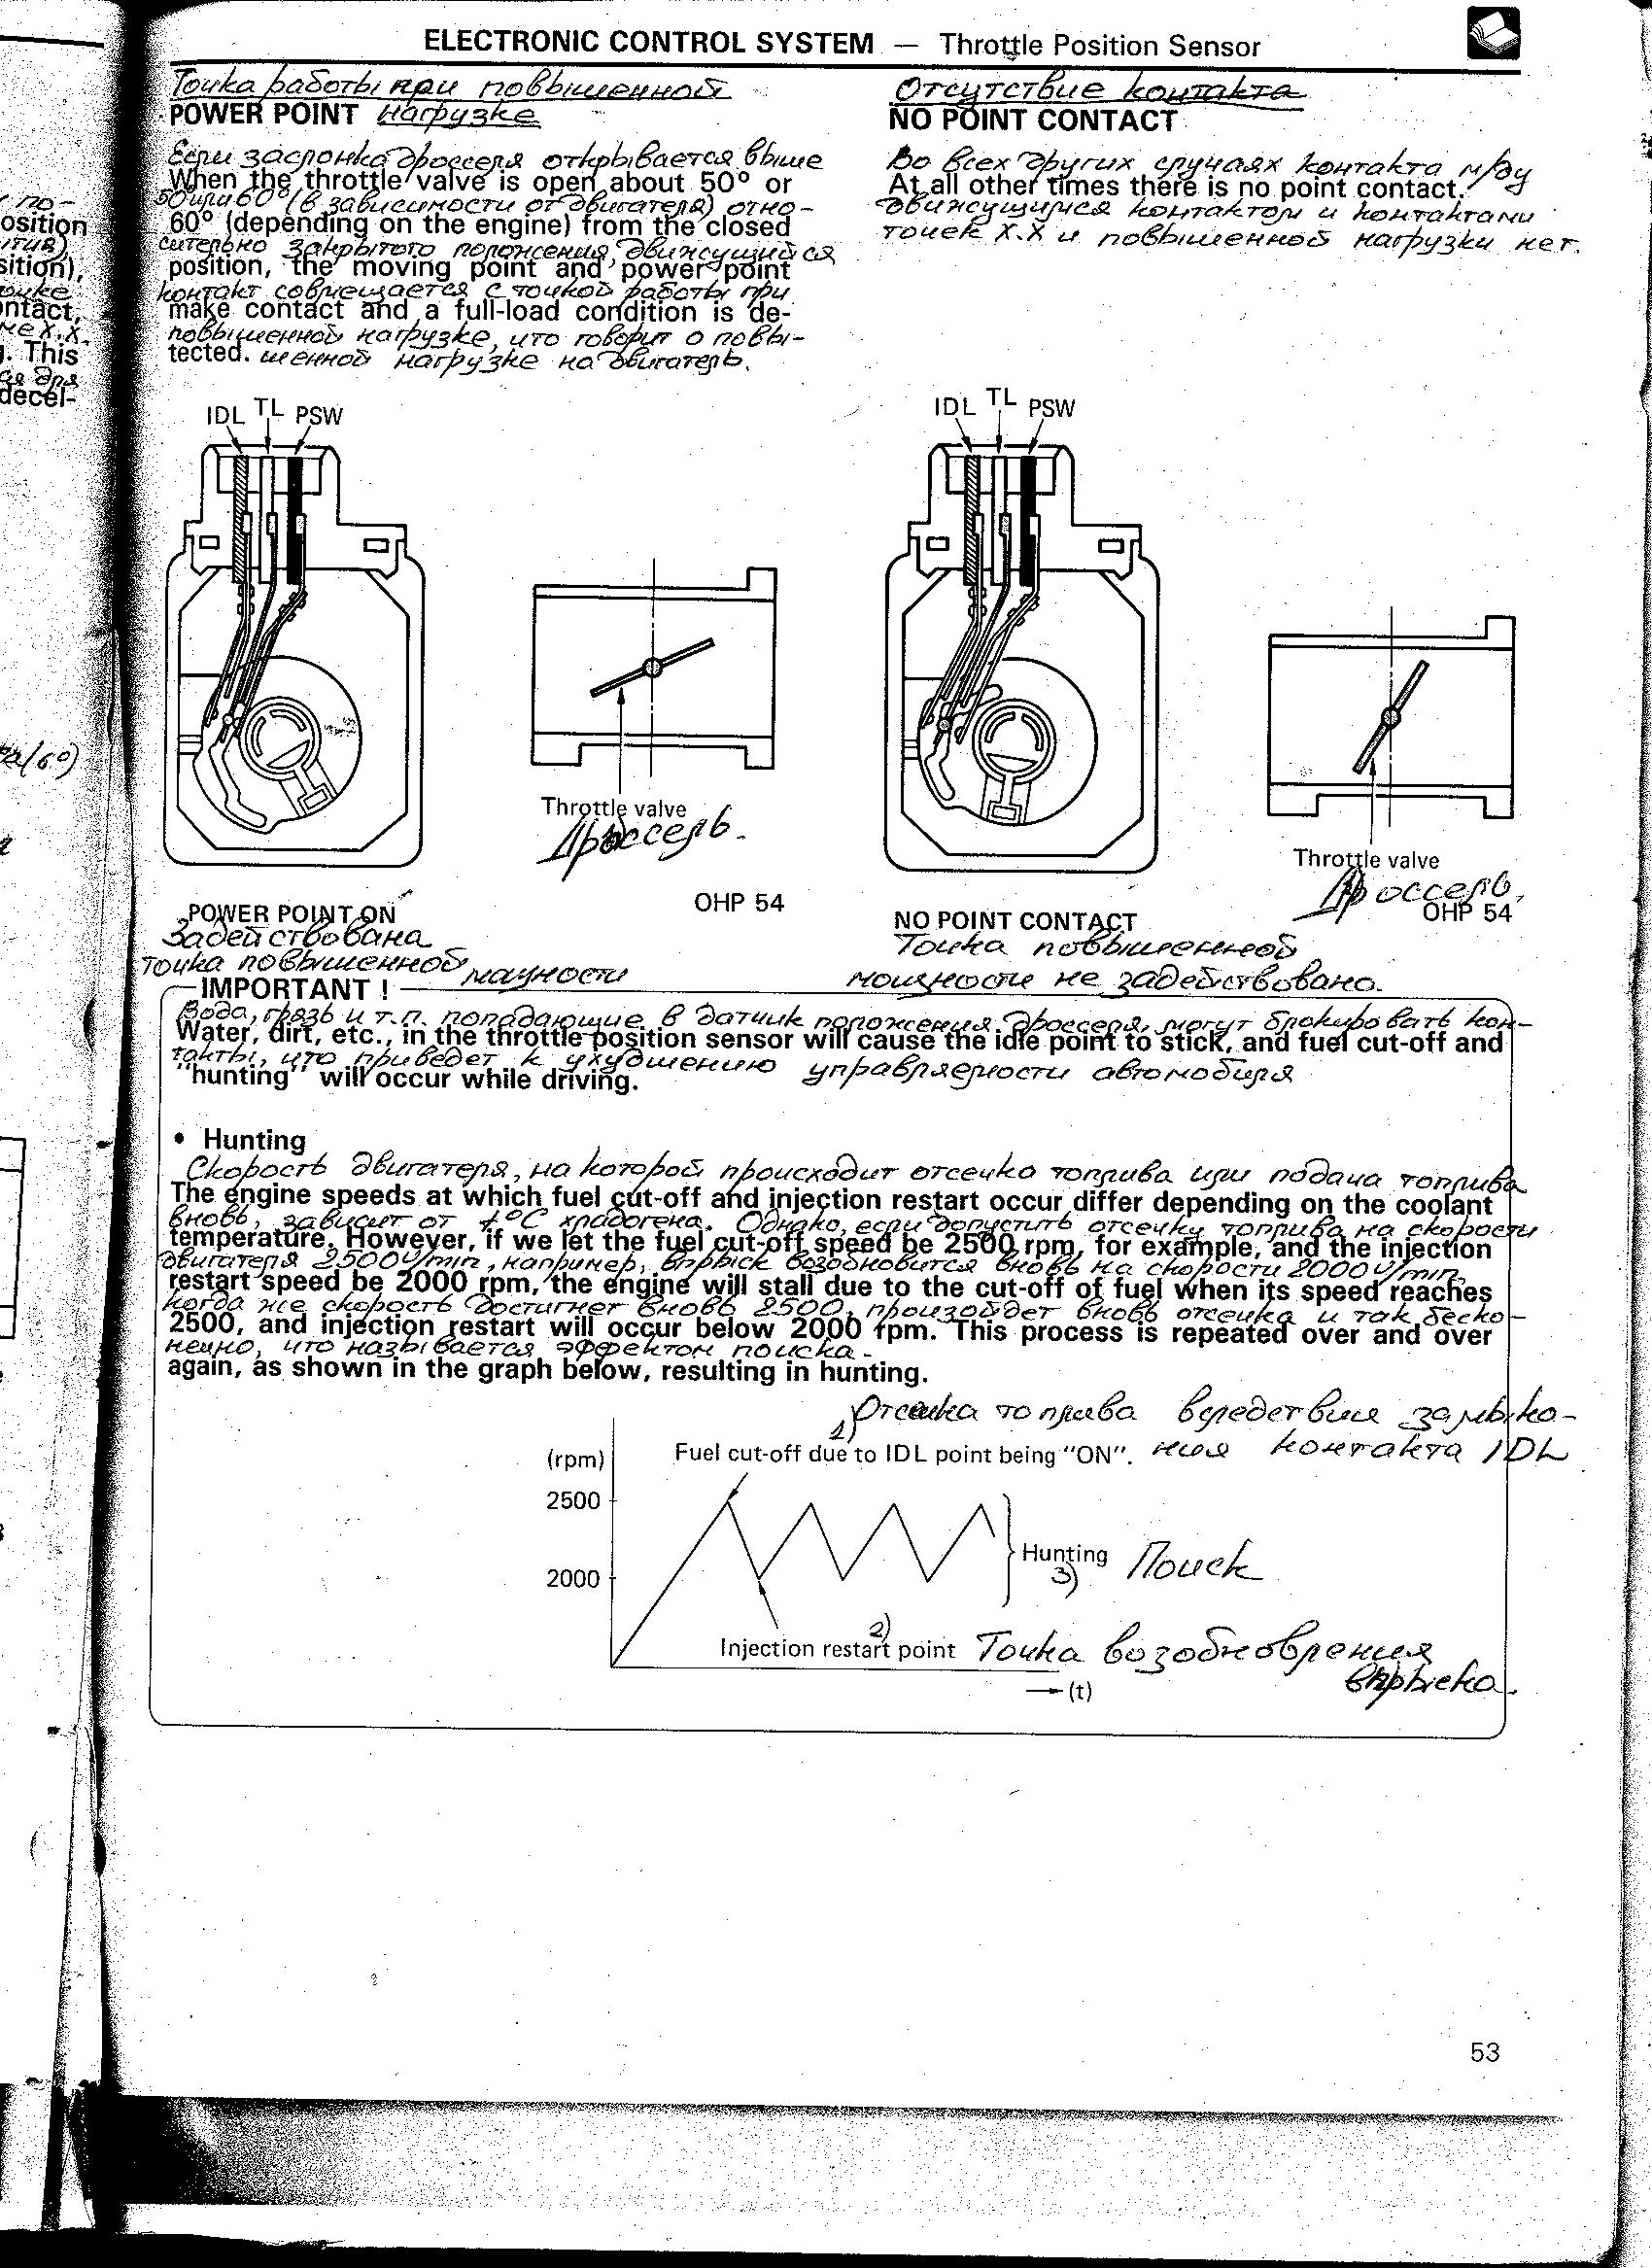 ELECTRONIC CONTROL SYSTEM — Throttle Position Sensor
Точка работы при повышенной
POWER POINT нагрузке
Если заслонка дросселя открывается выше
When the throttle valve is open about 50° or
50 или 60° (в зависимости от двигателя) отно-
60° (depending on the engine) from the closed
сительно закрытого положения, движущийся
position, the moving point and power point
контакт совмещается с точкой работы при
make contact and a full-load condition is de-
повышенной нагрузке, что говорит о повы-
tected. шенной нагрузке на двигатель.
Отсутствие контакта
NO POINT CONTACT
Во всех других случаях контакта м/ду
At all other times there is no point contact.
движущимся контактом и контактами
точек х.х и повышенной нагрузки нет.
по-
osition
sition),
ontact,
не х.х.
g. This
для
decel-
(60)
IDL TL PSW
Throttle valve
Дроссель.
OHP 54
POWER POINT ON
Задействована
точка повышенной мощности
IDL TL PSW
Throttle valve
Дроссель.
OHP 54
NO POINT CONTACT
Точка повышенной
мощности не задействована.
IMPORTANT !
Вода, грязь и т.п. попадающие в датчик положения дросселя, могут блокировать кон-
Water, dirt, etc., in the throttle position sensor will cause the idle point to stick, and fuel cut-off and
такты, что приведет к ухудшению управляемости автомобиля
"hunting" will occur while driving.
• Hunting
Скорость двигателя, на которой происходит отсечка топлива или подача топлива
The engine speeds at which fuel cut-off and injection restart occur differ depending on the coolant
вновь, зависит от t°C хладогена. Однако, если допустить отсечку топлива на скорости
temperature. However, if we let the fuel cut-off speed be 2500 rpm, for example, and the injection
двигателя 2500 v/min, например, впрыск возобновится вновь на скорости 2000 v/min,
restart speed be 2000 rpm, the engine will stall due to the cut-off of fuel when its speed reaches
когда же скорость достигнет вновь 2500, произойдет вновь отсечка и так беско-
2500, and injection restart will occur below 2000 rpm. This process is repeated over and over
нечно, что называется эффектом поиска.
again, as shown in the graph below, resulting in hunting.
1) Отсечка топлива вследствие замыка-
Fuel cut-off due to IDL point being "ON". ния контакта IDL
(rpm)
2500
2000
Hunting Поиск
3)
2)
Injection restart point Точка возобновления
впрыска.
(t)
53